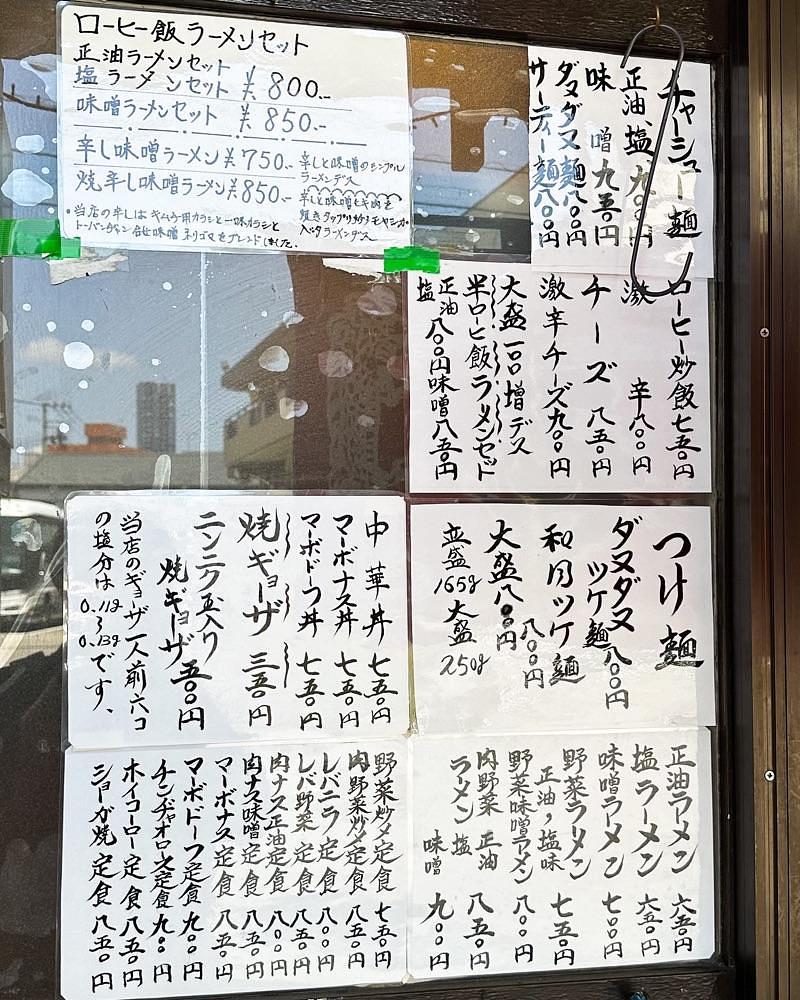 ロービー飯ラーメンセット
正油ラーメンセット
塩ラーメンセット ¥800.-
味噌ラーメンセット ¥850.-
辛し味噌ラーメン¥750.- 辛しと味噌のシンプル
ラーメンデス
焼辛し味噌ラーメン¥850.- 辛しと味噌とキムチを
焼きタップリ野菜とモヤシが
入ッタラーメンデス
・当店の辛しはキムチ用カラシと一味カラシと
トーバンヂャン 合せ味噌 ネリゴマをブレンドしました
チャーシュー麺
正油、塩、九〇〇円
味噌 九五〇円
ダヌダヌ麺八〇〇円
サーディー麺八〇〇円
ロービー炒飯七五〇円
激辛八〇〇円
チーズ 八五〇円
激辛チーズ九〇〇円
大盛一〇〇増デス
半ロービー飯ラーメンセット
正油 八〇〇円味噌八五〇円
塩
つけ麺
ダヌダヌ
ツケ麺八〇〇円
和風ツケ麺
八〇〇円
大盛八〇〇円
並盛165g大盛250g
中華丼 七五〇円
マーボナス丼 七五〇円
マーボドーフ丼 七五〇円
焼ギョーザ 三五〇円
ニンニク玉入り
焼ギョーザ 五〇〇円
当店のギョーザ一人前六コ
の塩分は0.11g~0.13gです、
正油ラーメン 六五〇円
塩ラーメン 六五〇円
味噌ラーメン 七〇〇円
野菜ラーメン
正油,塩味 七五〇円
野菜味噌ラーメン 八〇〇円
肉野菜 正油 八五〇円
ラーメン 塩
味噌 九〇〇円
野菜炒メ定食 七五〇円
肉野菜炒メ定食 八五〇円
レバニラ定食 八〇〇円
レバ野菜定食 八五〇円
肉ナス正油定食 八〇〇円
肉ナス味噌定食 八五〇円
マーボナス定食 八五〇円
マーボドーフ定食 九〇〇円
チンヂャオロース定食 九〇〇円
ホイコーロー定食 八五〇円
ショーガ焼定食 八五〇円